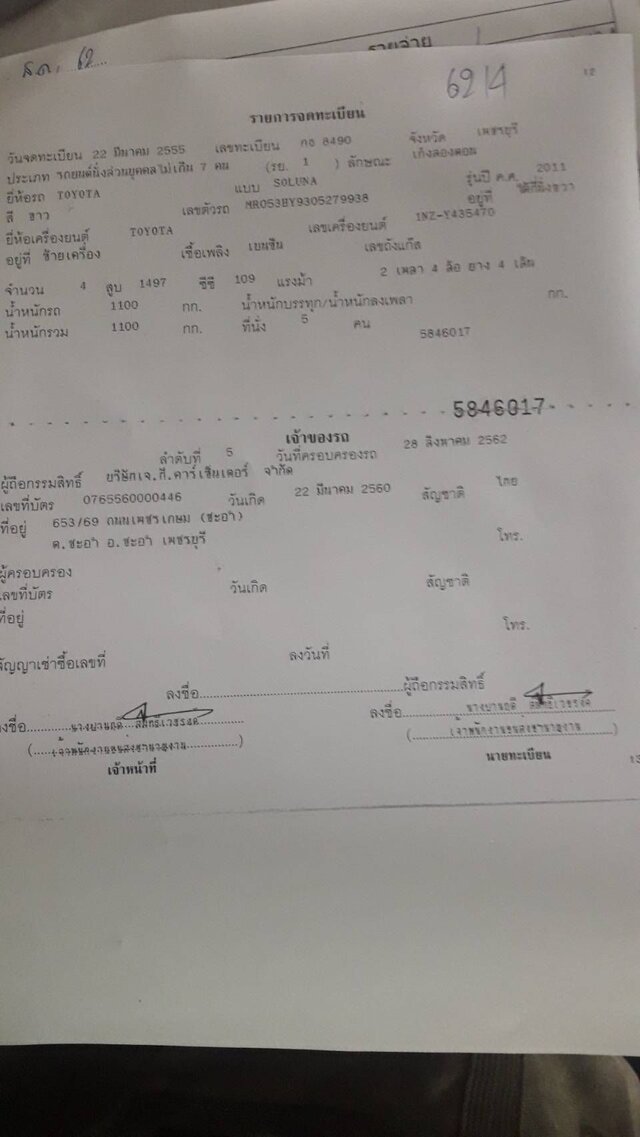 ส.ค. 62
รายจ่าย
62/4
12
รายการจดทะเบียน
วันจดทะเบียน 22 มีนาคม 2555 เลขทะเบียน กง 8490 จังหวัด เพชรบุรี
ประเภท รถยนต์นั่งส่วนบุคคลไม่เกิน 7 คน (รย. 1 ) ลักษณะ เก๋งสองตอน
ยี่ห้อรถ TOYOTA แบบ SOLUNA รุ่นปี ค.ศ. 2011
สี ขาว เลขตัวรถ MR053HY9305279938 อยู่ที่ ใต้ที่นั่งขวา
ยี่ห้อเครื่องยนต์ TOYOTA เลขเครื่องยนต์ 1NZ-Y435470
อยู่ที่ ซ้ายเครื่อง เชื้อเพลิง เบนซิน เลขถังแก๊ส
จำนวน 4 สูบ 1497 ซีซี 109 แรงม้า 2 เพลา 4 ล้อ ยาง 4 เส้น
น้ำหนักรถ 1100 กก. น้ำหนักบรรทุก/น้ำหนักลงเพลา กก.
น้ำหนักรวม 1100 กก. ที่นั่ง 5 คน 5846017
5846017
เจ้าของรถ
ลำดับที่ 5 วันที่ครอบครองรถ 28 สิงหาคม 2562
ผู้ถือกรรมสิทธิ์ บริษัทเจ.ที.คาร์เซ็นเตอร์ จำกัด
เลขที่บัตร 0765560000446 วันเกิด 22 มีนาคม 2560 สัญชาติ ไทย
ที่อยู่ 653/69 ถนนเพชรเกษม (ชะอำ)
ต.ชะอำ อ.ชะอำ เพชรบุรี โทร.
ผู้ครอบครอง
เลขที่บัตร วันเกิด สัญชาติ
ที่อยู่
โทร.
สัญญาเช่าซื้อเลขที่ ลงวันที่
ลงชื่อ ผู้ถือกรรมสิทธิ์
ลงชื่อ ลงชื่อ
(เจ้าพนักงานขนส่งชำนาญงาน) (เจ้าพนักงานขนส่งชำนาญงาน)
เจ้าหน้าที่ นายทะเบียน
13